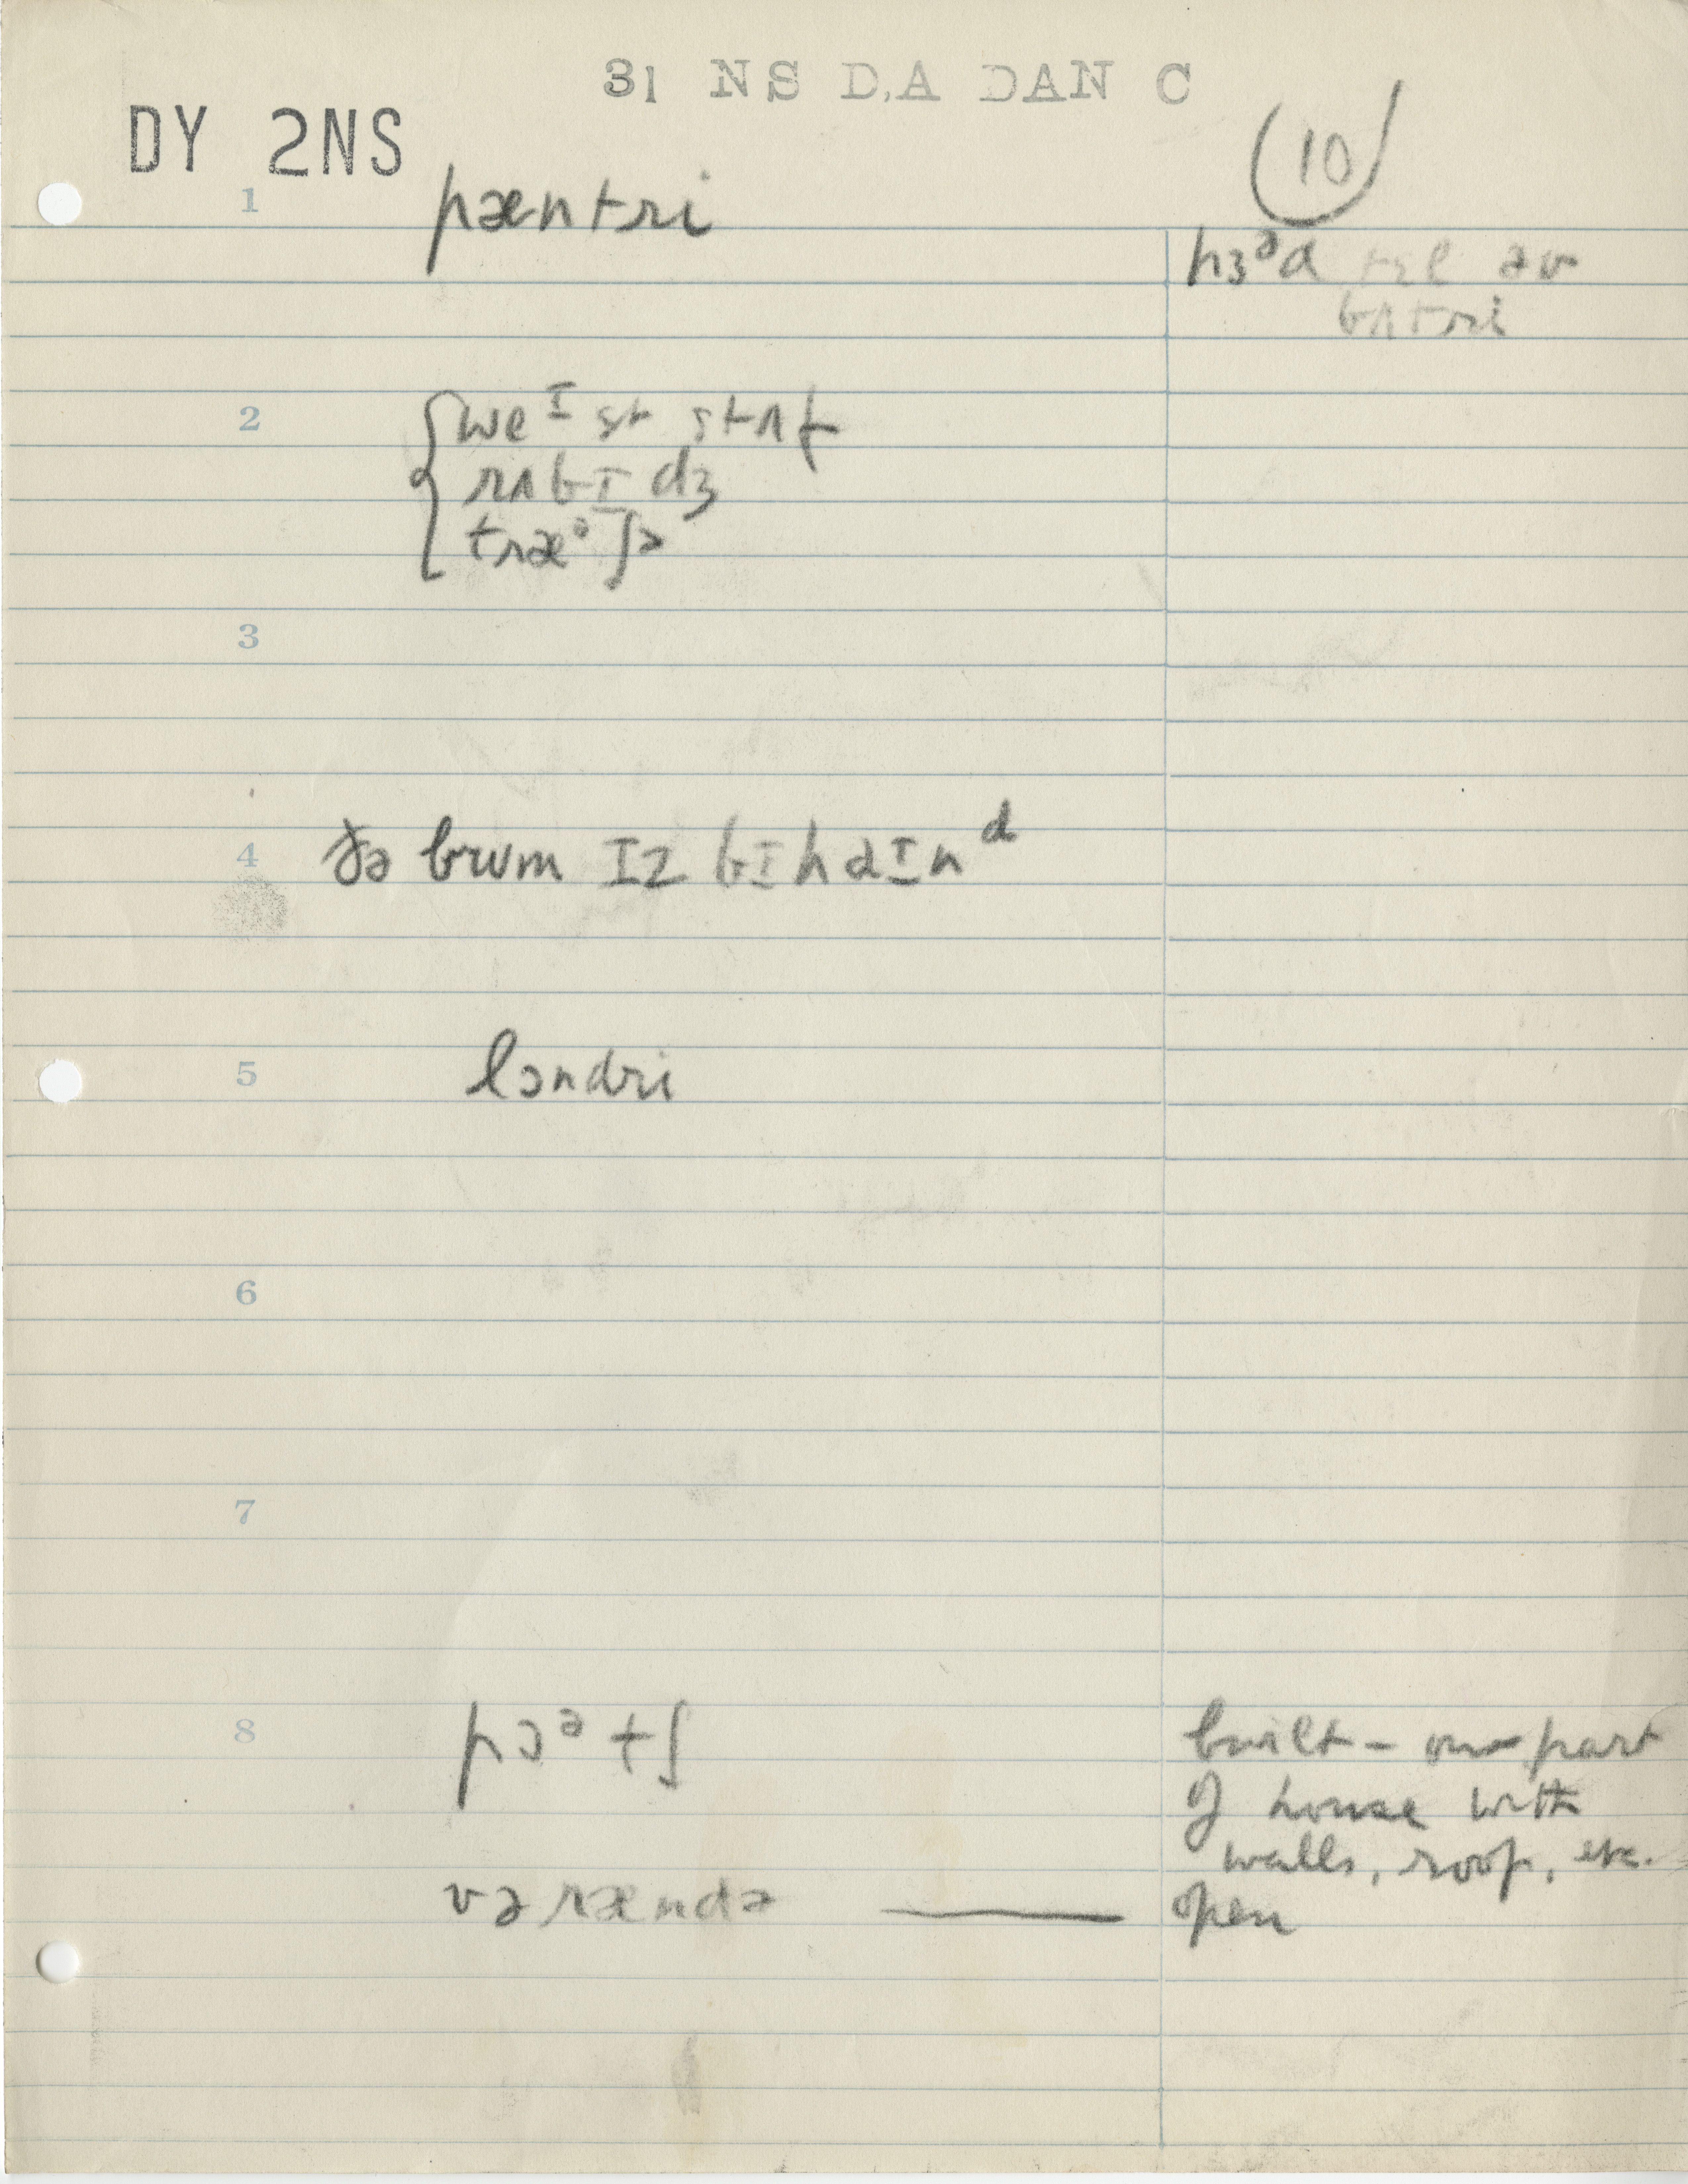 31 NS D.A DAN C
DY 2NS
10
1 pæntri
hɜᵊd tɛl əv
bʌtri
2 weᴵst stʌf
rʌbɪdʒ
træᵊʃ
3
4 ðə brum ɪz bɪhaɪnᵈ
5 lɔndri
6
7
8 pɔᵊtʃ
built-on part
of house with
walls, roof, etc.
vərændə — open